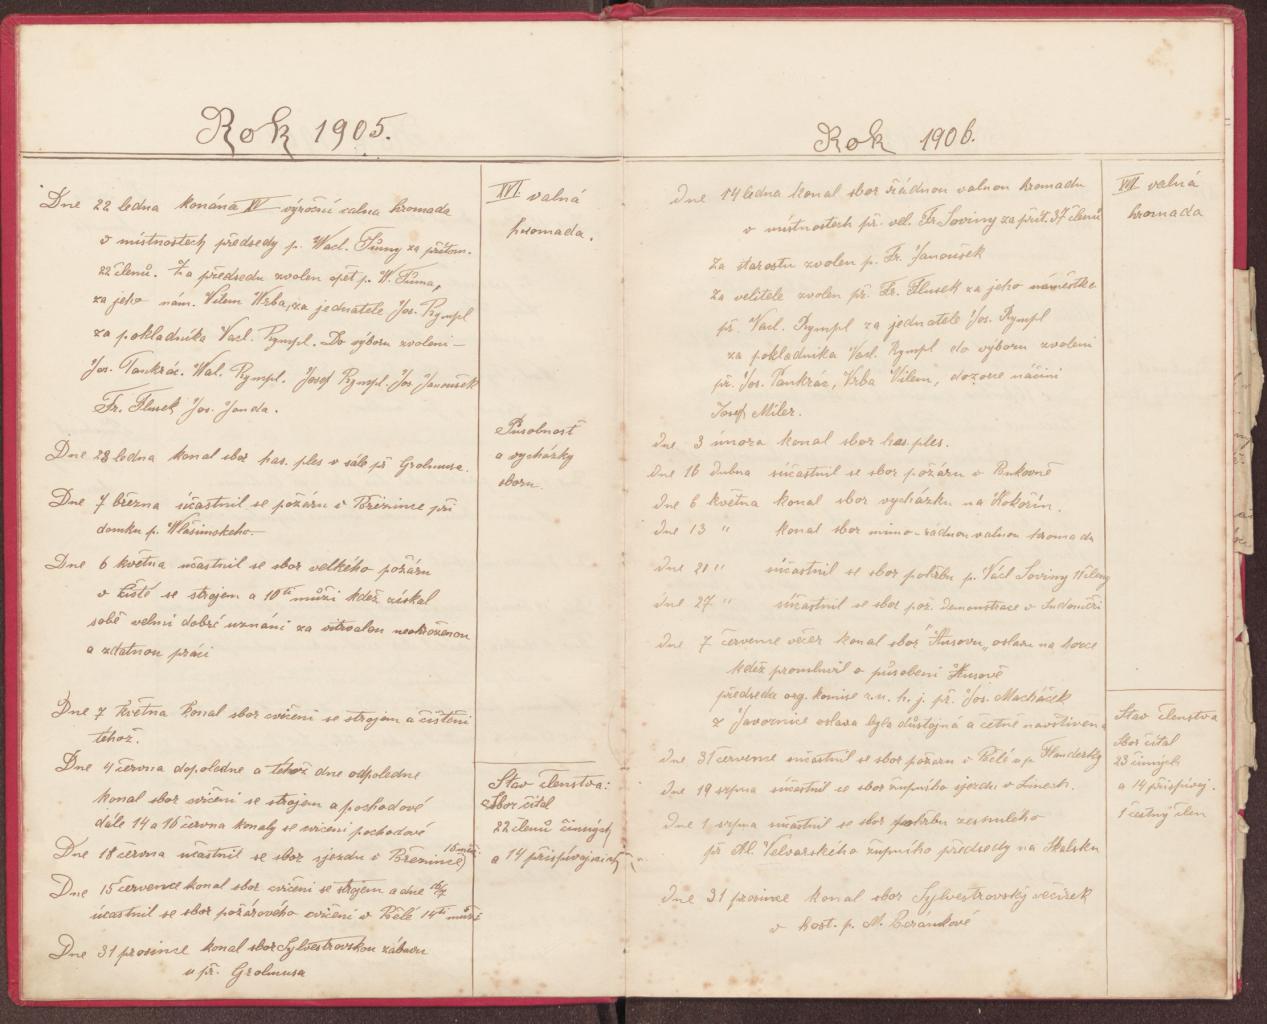 Rok 1905.
Dne 22 ledna konána XV výroční valna hromada
v místnostech předsedy p. Wacl. Tůmy za přítom.
22 členů. Za předsedu zvolen opět p. W. Tůma,
za jeho nám. Vilem Wrba, za jednatele Jos. Rympl
za pokladníka Vacl. Rympl. Do výboru zvoleni –
Jos. Pankrác. Wal. Rympl. Josef Rympl. Jos. Janoušek
Fr. Flusek Jos. Janda.
Dne 28 ledna konal sbor has. ples v sále př Grolmusa.
Dne 7 března účastnil se požáru v Březince při
domku p. Wlašimskeho.
Dne 6 května učastnil se sbor velkého požáru
v Liště se strojem a 10ti muži kdež získal
sobě velmi dobré uznání za vitrvalou neohroženou
a zdatnou práci
Dne 7 května konal sbor cvičeni se strojem a čištění
tehož.
Dne 4 června dopoledne a tehož dne odpoledne
konal sbor cvičeni se strojem a pochodové
dále 14 a 16 června konaly se cvičeni pochodové
Dne 18 června učastnil se sbor sjezdu v Březince
Dne 15 července konal sbor cvičeni se strojem a dne 16/7
účastnil se sbor požárového cvičeni v Bělé 14ti muži
Dne 31 prosince konal sbor Sylvestrovskou zábavu
u př. Grolmusa
XVI. valná
hromada.
Působnost
a vycházky
sboru.
Stav členstva:
Sbor čítal
22 členů činných
a 14 přispívajicich
Rok 1906.
dne 14 ledna konal sbor řádnou valnou hromadu
v místnostech př. vel. Fr. Soviny za přit. 37 členů
Za starostu zvolen p. Fr. Janoušek
Za velitele zvolen př. Fr. Flusek za jeho náměstka
př. Vacl. Rympl za jednatele Jos. Rympl
za pokladníka Vacl. Rympl do výboru zvoleni
př. Jos. Pankrác, Vrba Vilem, dozorce náčiní
Josef Miler.
dne 3 února konal sbor has. ples.
dne 16 dubna súčastnil se sbor požáru v Bukovně
dne 6 května konal sbor vycházku na Kokořín.
dne 13 " konal sbor mimo-řádnou valnou hromadu
dne 21 " súčastnil se sbor pohřbu p. Václ Soviny
dne 27 " súčastnil se sbor pož. demonstrace v Sudoměři
dne 7 července večer konal sbor "Husovu" oslavu na horce
kdež promluvil o působení Husově
předseda org. komise z. u. h. j. př. Jos. Macháček
z Javornice oslava byla důstojná a četně navštivena
dne 31 července súčastnil se sbor požáru v Bělé u p.
dne 19 srpna súčastnil se sbor župního sjezdu v
dne 1 srpna súčastnil se sbor pohřbu zesnulého
př Al. Velvarského župního předsedy na Skalsku
dne 31 prosince konal sbor Sylvestrovský večírek
v host. p. A. Beránkové
XVII valná
hromada
Stav členstva
Sbor čítal
23 činných
a 14 přispívaj.
1 čestný člen